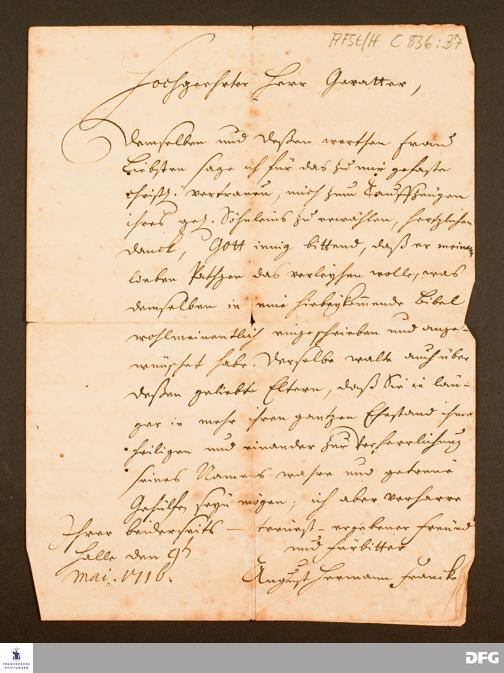 AFSt/H C 836:37
Hochgeehrter Herr Gevatter,
demselben und deßen werthen Frau
Liebsten sage ich für das zu mir gefaste
christl. vertrauen, mich zum Tauffzeugen
ihres gel. Söhnleins zu erwählen, hertzlichen
danck, Gott innig bittend, daß er meinem
lieben Pathgen das verleyhen wolle, was
demselben in eine hiebeykommende Bibel
wohlmeinentlich eingeschrieben und ange-
wünschet habe. Derselbe walte auch über
deßen geliebte Eltern, daß Sie ie län-
ger ie mehr ihren gantzen Ehestand ihme
heiligen und einander zur Verherrlichung
seines Namens wahre und getreue
Gehülfen seyn mögen; ich aber verharre
Ihrer beiderseits – treuest-ergebener Freund
und fürbitter
Halle den 9
Mai. 1716.
August Hermann Francke
FRANCKESCHE
STIFTUNGEN
DFG